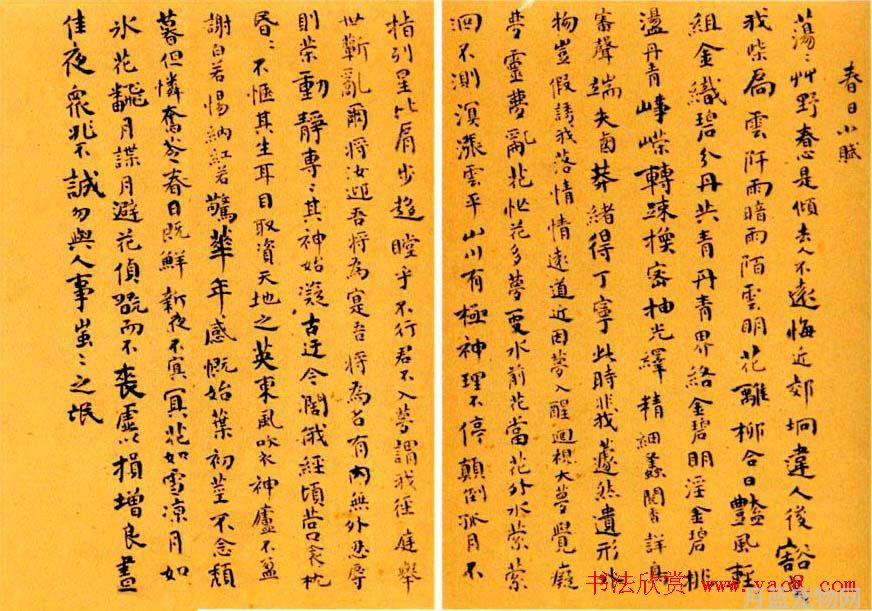 春日小賦
蕩〻艸野春心是傾去人不遠悔近郊坰違人後豁
我柴扃雲阡雨暗雨陌雲明花離柳合日豔風輕
組金織碧分丹共青丹青界絡金碧明淫金碧桃
盪丹青崢嶸轉疎換密抽光繹精細蠡閱香詳鳥
審聲端失鹵莽緒得丁寧此時我蘧然遺形外
物豈假誘我落情情遠道近因夢入醒迴視大夢覺癡
夢靈夢亂花忙花多夢更水前花當花外水縈縈
洄不測溟漲雲平山川有極神理不停顛倒孤月不
指列星比肩步趨瞠乎不行君不入夢謂我徑庭舉
世蘄亂爾將汝迎吾將為寔吾將為名有內無外忍辱
則榮動靜專〻其神始凝古迂今闊俄經頃營衾枕
昏〻不愜其生耳目取資天地之英東風吹衣神廬不盈
謝白若惕納紅若驚華年感慨始葉初莖不念頹
暮但憐奮苓春日既鮮新夜不寞冥花如雪涼月如
氷花翻月諜月避花偵既而不喪虛以損增良晝
佳夜衆兆不誠勿與人事蚩〻之氓
书法欣赏 www.yac8.com